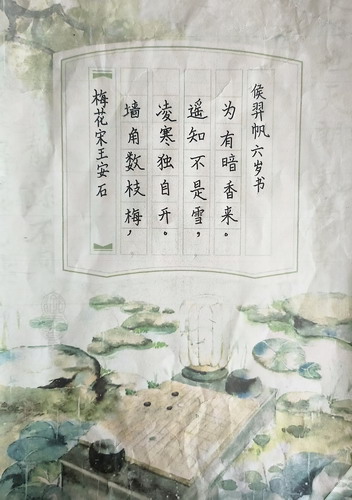 梅花宋王安石
墙角数枝梅，
凌寒独自开。
遥知不是雪，
为有暗香来。
侯羿帆 六岁书